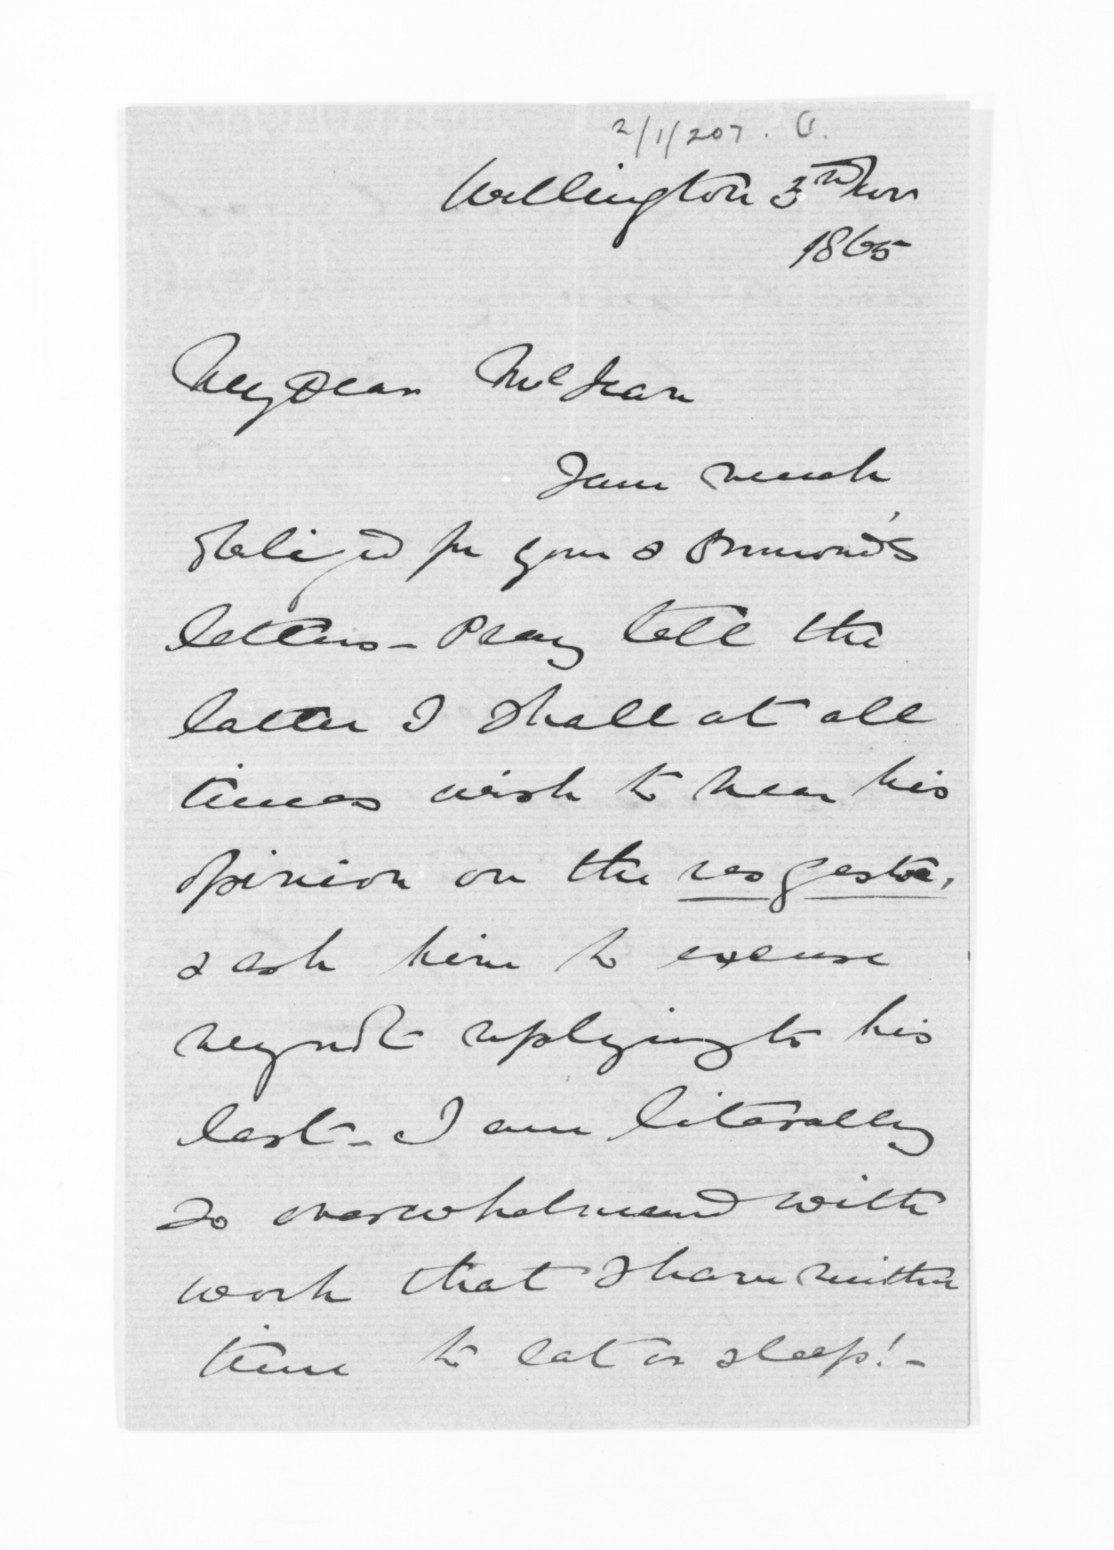 2/1/207. O.
Wellington 3rd Nov
1865
My Dear McLean
I am much
obliged for your & Ormond's
letters - Pray tell the
latter I shall at all
times wish to hear his
opinion on the res gestae,
& ask him to excuse
my not replying to his
last - I am literally
so overwhelmed with
work that I have neither
time to eat or sleep! -